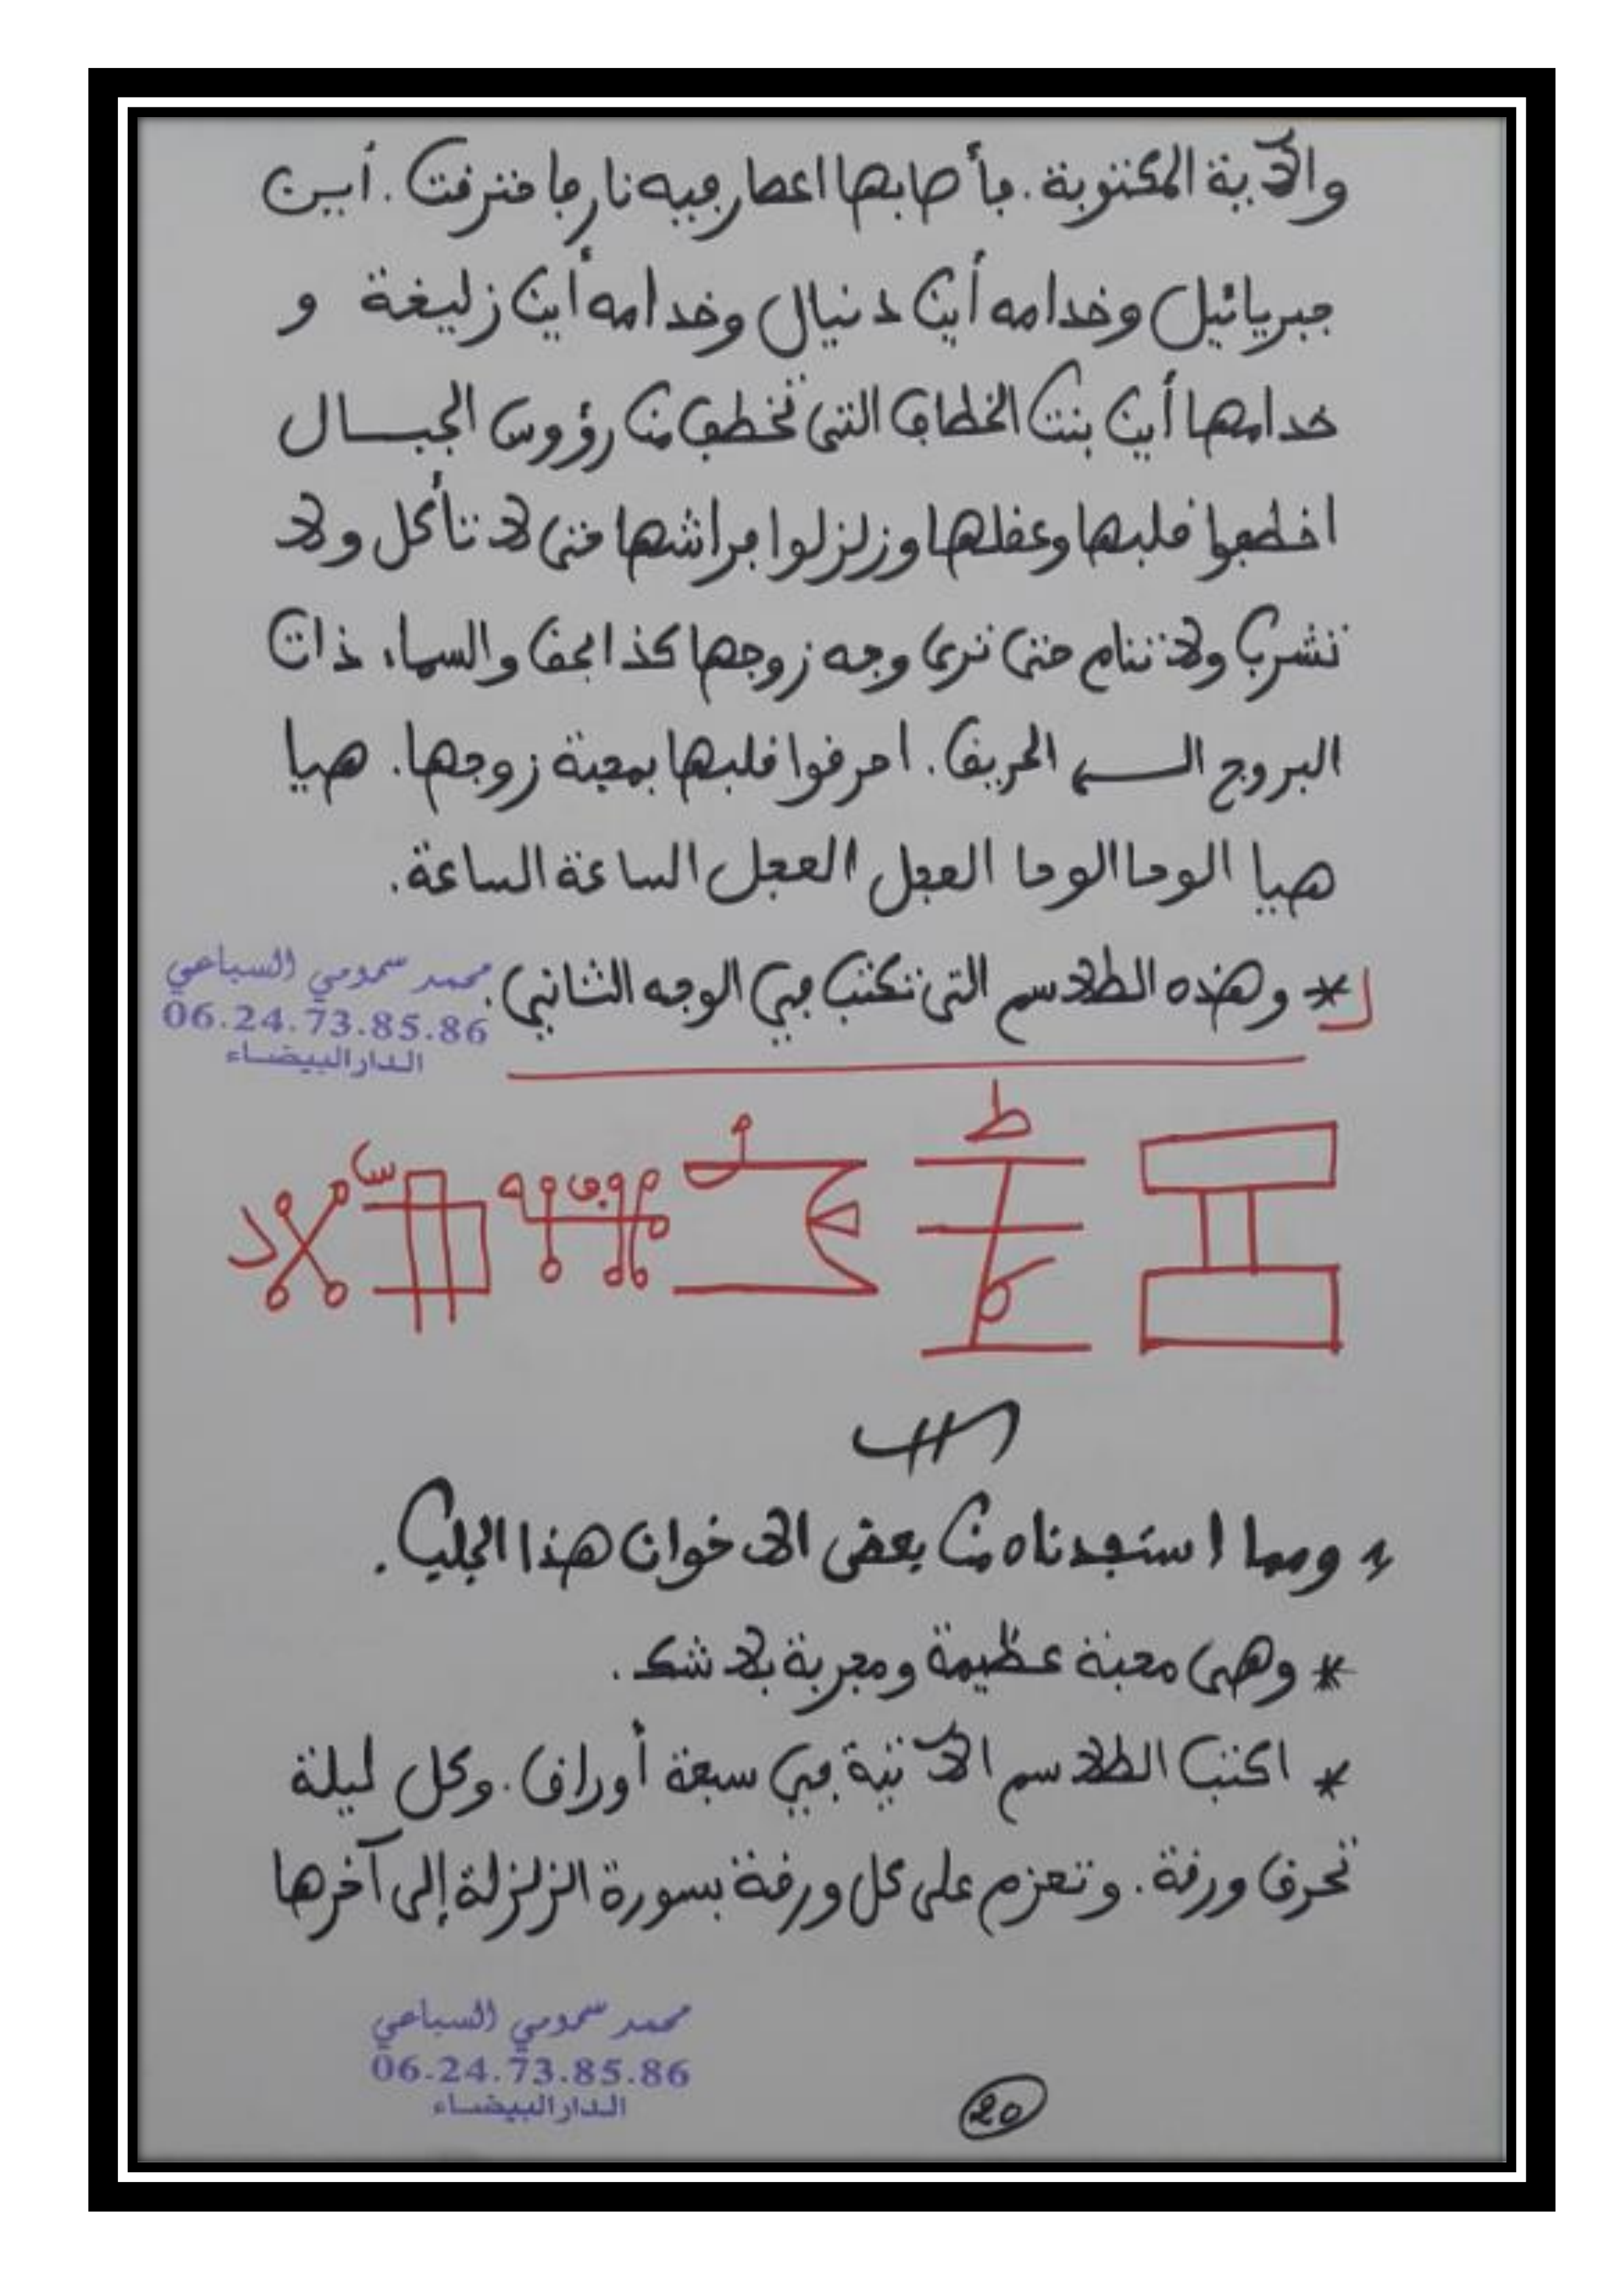 والآية المكتوبة. فأصابها اعصار فيه نار فاحترقت. أين
جبريائيل وخدامه أين دنيال وخدامه أين زليغة و
خدامها أين بنت الخطاف التي تخطف من رؤوس الجبال
اخطفوا قلبها وعقلها وزلزلوا فراشها حتى لا تأكل ولا
تشرب ولا تنام حتى ترى وجه زوجها كذا بحق والسماء ذات
البروج الـــــ الحريق. احرقوا قلبها بمحبة زوجها. هيا
هيا الوحا الوحا العجل العجل الساعة الساعة.
* وهذه الطلاسم التي تكتب في الوجه الثاني.
محمد سمومي السباعي
06.24.73.85.86
الدار البيضاء
ط
س
ومما استفدناه من بعض الاخوان هذا الجلب.
* وهي محبة عظيمة ومجربة بلا شك.
* اكتب الطلاسم الآتية في سبعة أوراق. وكل ليلة
تحرق ورقة. وتعزم على كل ورقة بسورة الزلزلة إلى آخرها
محمد سمومي السباعي
06.24.73.85.86
الدار البيضاء
20